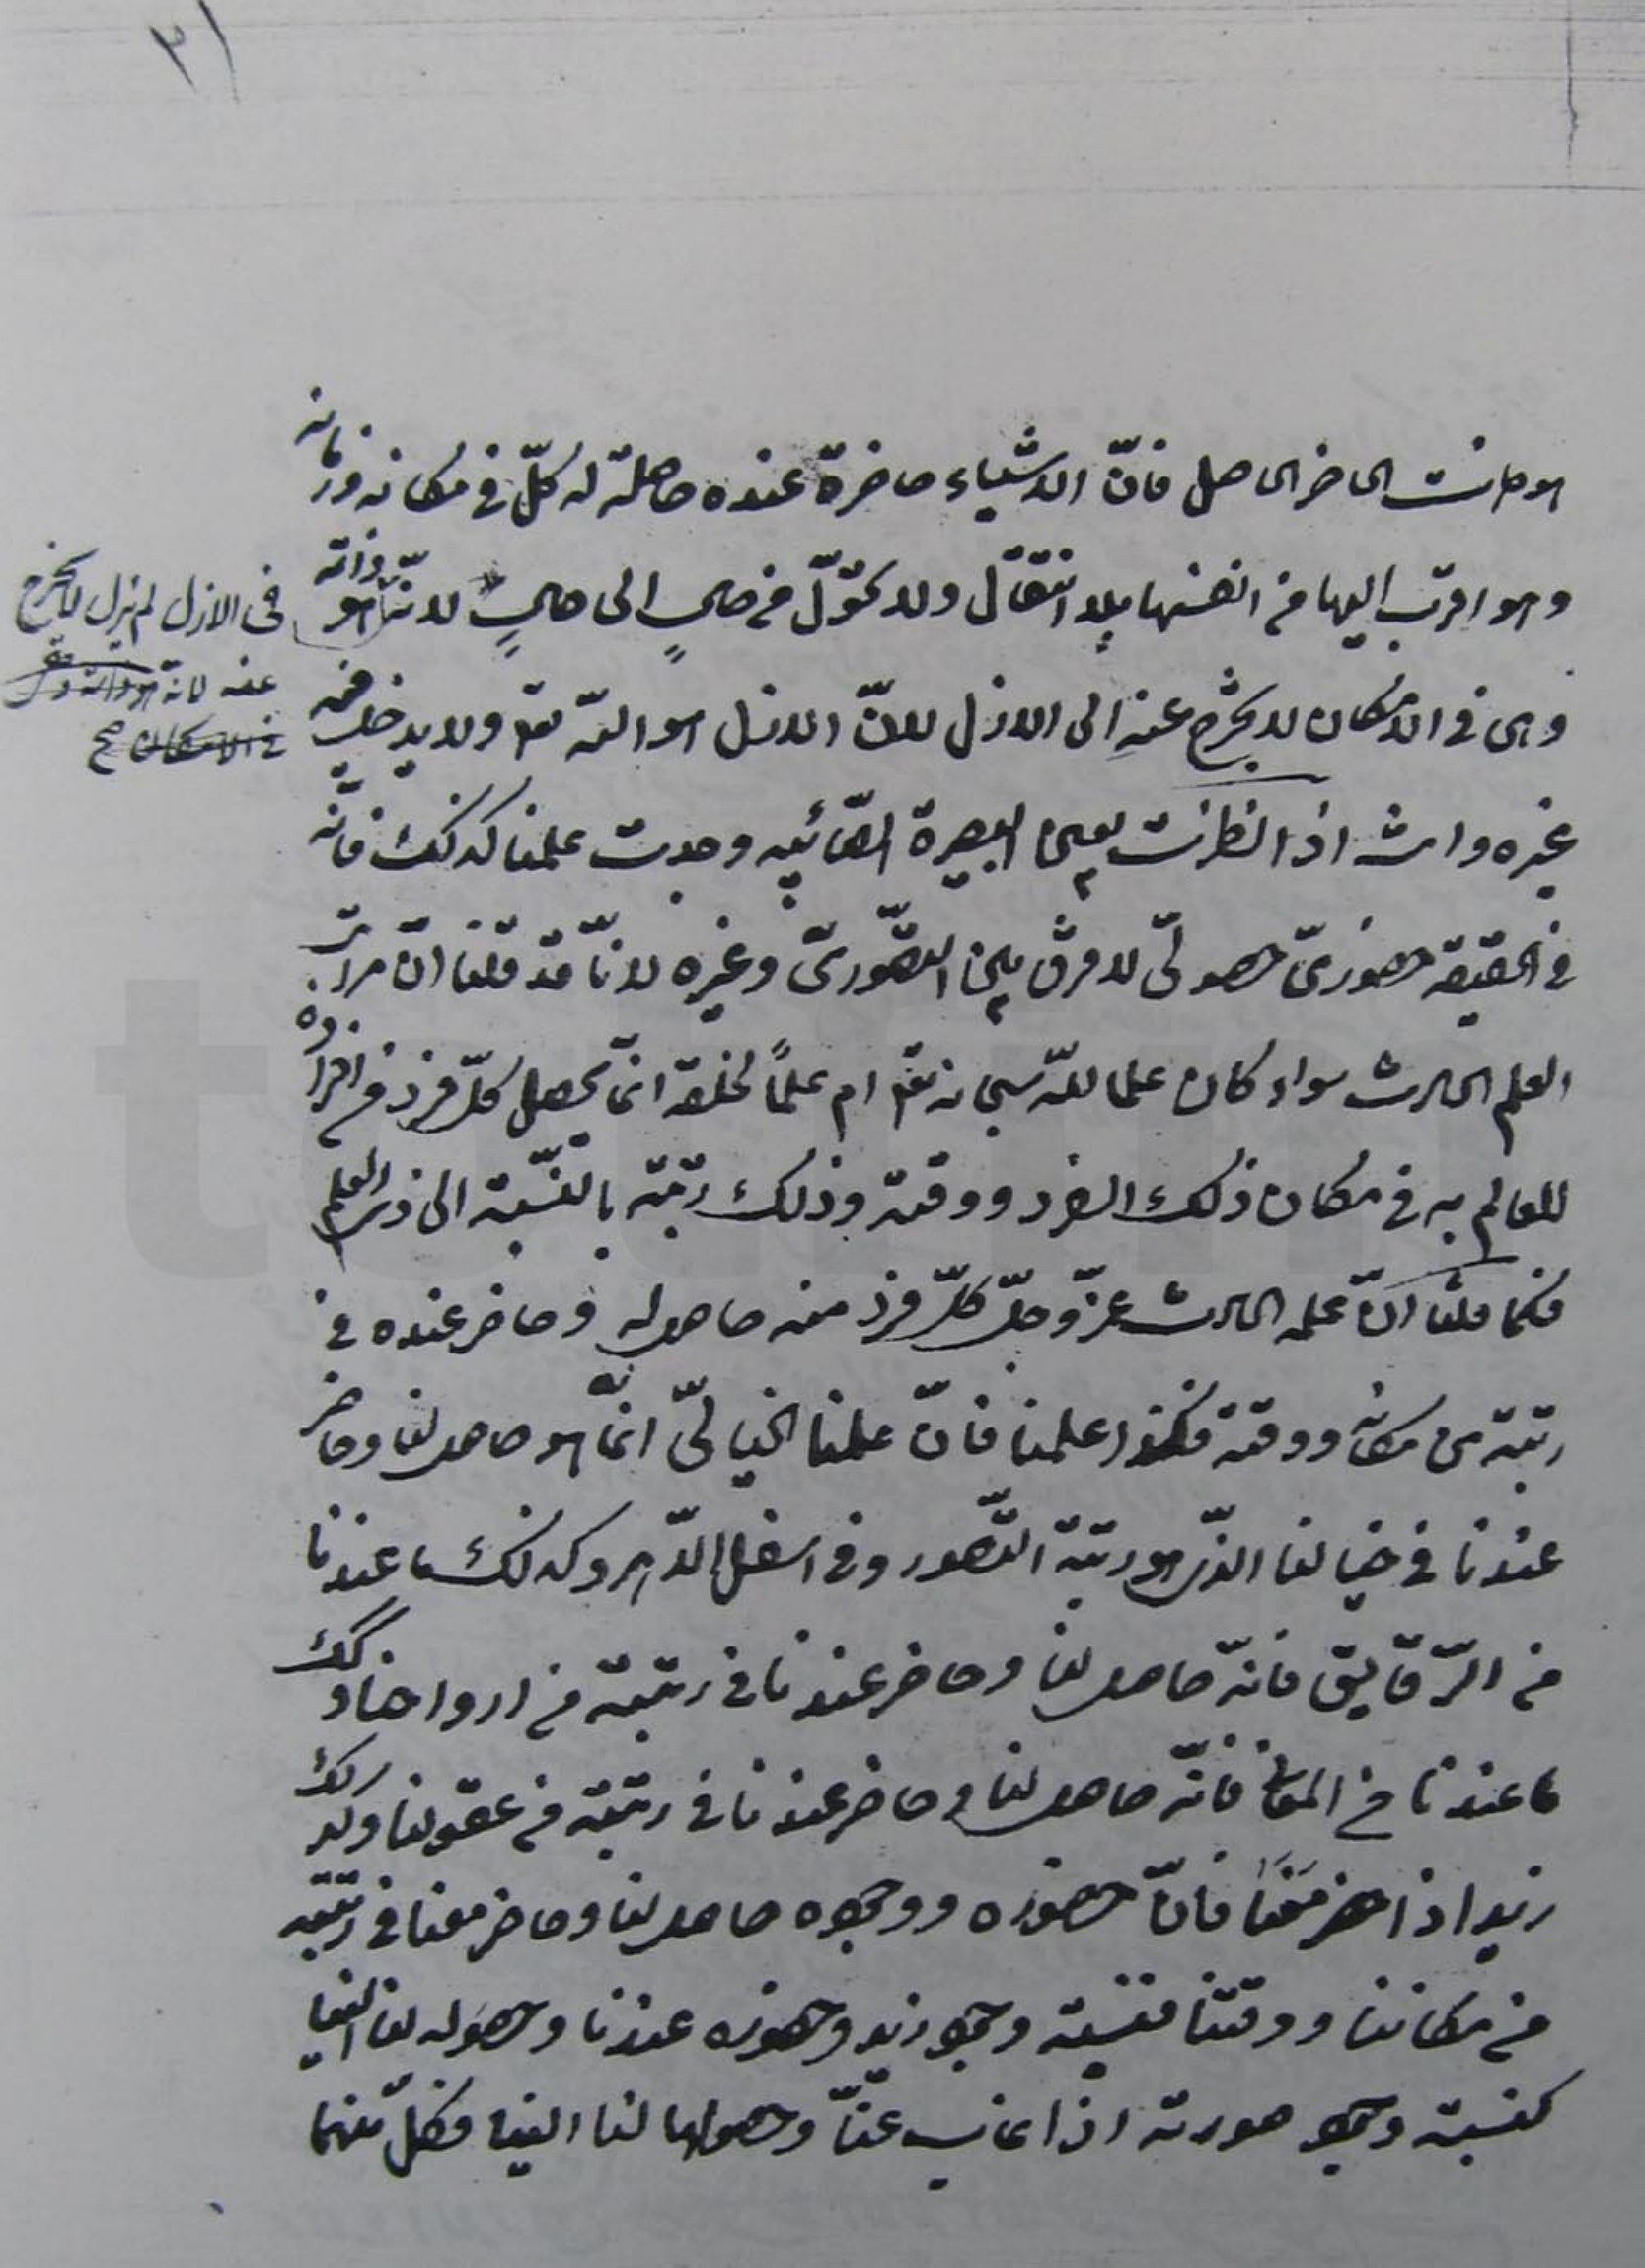 ٣١
الحاضر الحاصل فانّ الاشياء حاضرة عنده حاصلة له كلّ فى مكانه وزمانه
وهو اقرب اليها من انفسها بلا انتقال ولا تحوّل من حالٍ الى حالٍ لانّ ذاته
فى الازل لم يزل لا يخرج
عنه
صح
وهى فى الامكان لا يخرج عنه الى الازل لانّ الازل هو اللّه تع ولا يدخل فيه
غيره وانت اذا نظرت بعين البصيرة الصّائبه وجدت علمنا كذلك فانّه
فى الحقيقة حضورىّ حصولىّ لا فرق بين التصّورىّ وغيره لانّا قد قلنا انّ مراتب
العلم الحادث سواء كان علما للّه سبحانه تع ام علماً لخلقه انّما يحصل كلّ فرد من افراده
للعالم به فى مكان ذلك الفرد ووقته وذلك رتبته بالنّسبة الى ذى العلم
فكما قلنا انّ علمه الحادث عزّ وجلّ كلّ فرد منه حاصل له وحاضر عنده فى
رتبته من مكانه ووقته فكذا علمنا فانّ علمنا الخيالىّ انّما هو حاصل لنا وحاضر
عندنا فى خيالنا الذّى هو رتبة التّصور وفى اسفل الدّهر وكذلك ما عندنا
من الرّقايق فانّه حاصل لنا وحاضر عندنا فى رتبته من ارواحنا وكك
ما عندنا من المعانى فانّه حاصل لنا وحاضر عندنا فى رتبته من عقولنا وكذلك
زيد اذا حضر مَعَنَا فانّ حضوره ووجوده حاصل لنا وحاضر معنا فى رتبته
من مكاننا ووقتنا فنسبة وجود زيد وحضوره عندنا وحصوله لنا الينا
كنسبة وجود صورته اذا غاب عنّا وحصولها لنا الينا فكلّ منهما